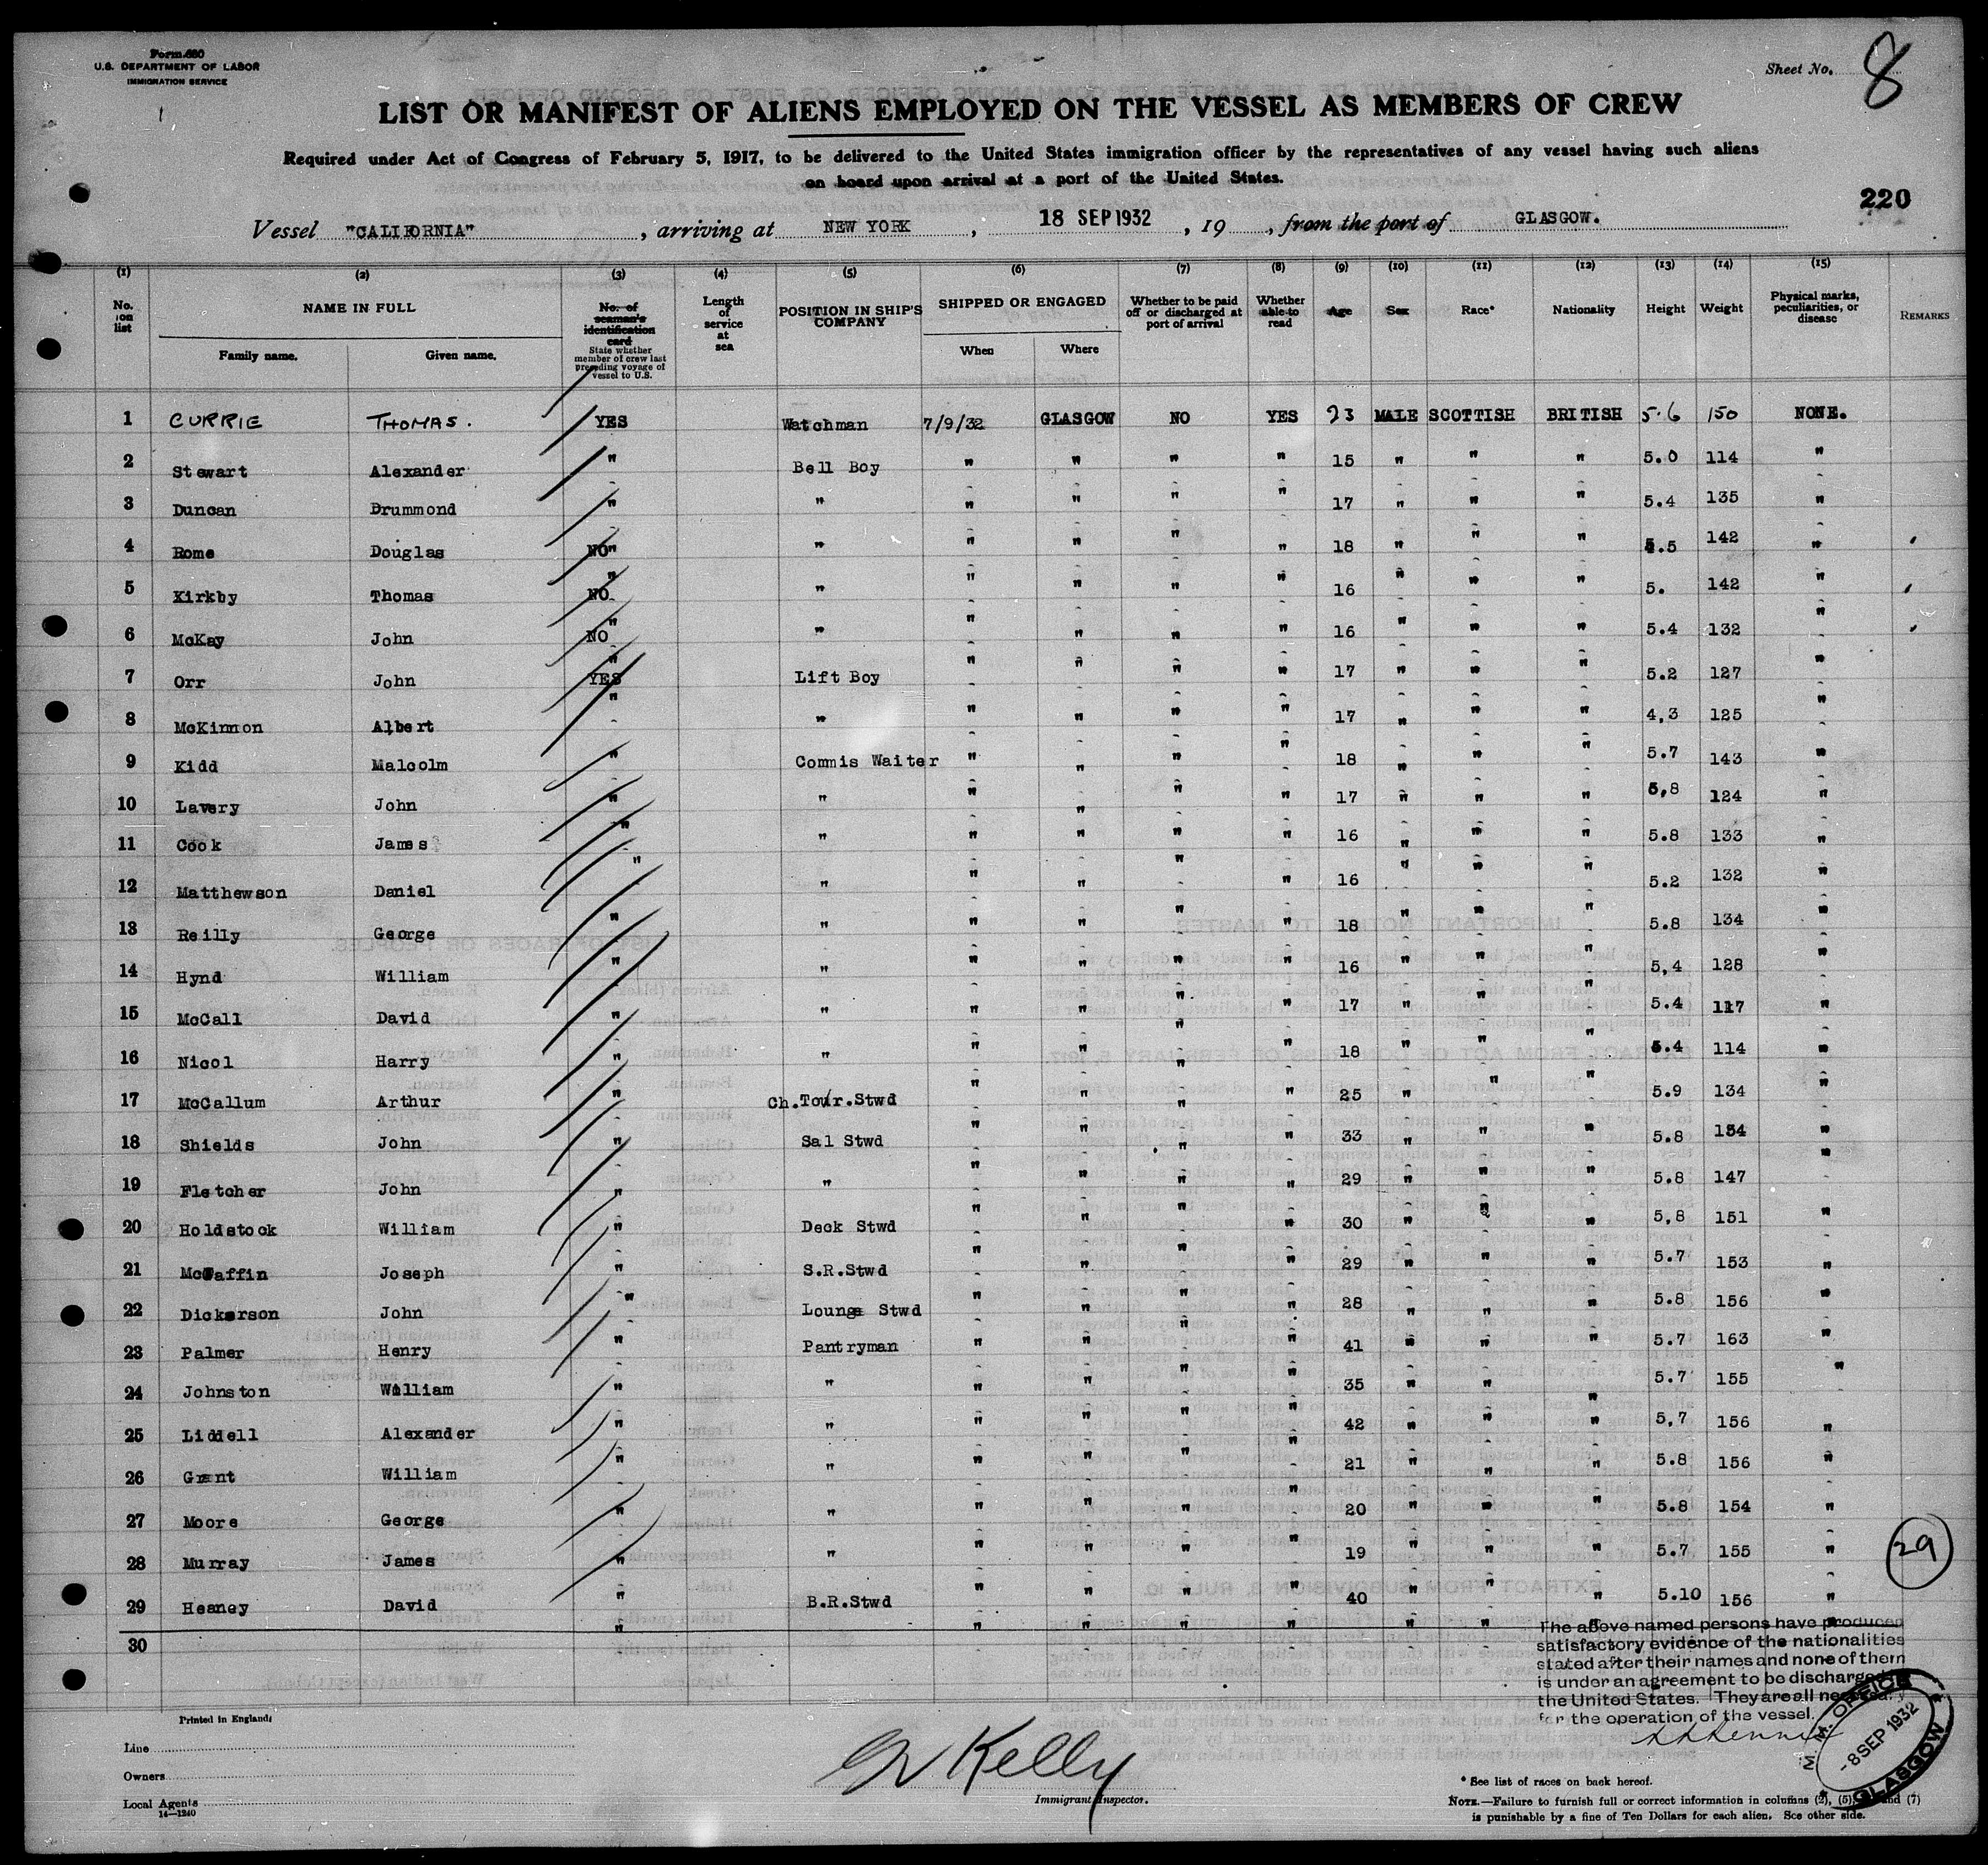 Form 680
U.S. DEPARTMENT OF LABOR
IMMIGRATION SERVICE
Sheet No. 8
LIST OR MANIFEST OF ALIENS EMPLOYED ON THE VESSEL AS MEMBERS OF CREW
Required under Act of Congress of February 5, 1917, to be delivered to the United States immigration officer by the representatives of any vessel having such aliens
on board upon arrival at a port of the United States.
220
Vessel "CALIFORNIA", arriving at NEW YORK, 18 SEP 1932, 19, from the port of GLASGOW.
(1) (2) (3) (4) (5) (6) (7) (8) (9) (10) (11) (12) (13) (14) (15)
No. on list
NAME IN FULL
Family name. Given name.
No. of seaman's identification card
State whether member of crew last preceding voyage of vessel to U.S.
Length of service at sea
POSITION IN SHIP'S COMPANY
SHIPPED OR ENGAGED
When Where
Whether to be paid off or discharged at port of arrival
Whether able to read
Age Sex Race* Nationality Height Weight
Physical marks, peculiarities, or disease
REMARKS
1 CURRIE THOMAS. YES Watchman 7/9/32 GLASGOW NO YES 23 MALE SCOTTISH BRITISH 5.6 150 NONE.
2 Stewart Alexander " Bell Boy " " " " 15 " " " 5.0 114 "
3 Duncan Drummond " " " " " " 17 " " " 5.4 135 "
4 Rome Douglas NO" " " " " " 18 " " " 5.5 142 "
5 Kirkby Thomas NO " " " " " " 16 " " " 5. 142 "
6 McKay John NO " " " " " " 16 " " " 5.4 132 "
7 Orr John YES " Lift Boy " " " " 17 " " " 5.2 127 "
8 McKinnon Albert " " " " " " 17 " " " 4,3 125 "
9 Kidd Malcolm " Commis Waiter " " " " 18 " " " 5.7 143 "
10 Lavery John " " " " " " 17 " " " 5,8 124 "
11 Cook James " " " " " " 16 " " " 5.8 133 "
12 Matthewson Daniel " " " " " " 16 " " " 5.2 132 "
13 Reilly George " " " " " " 18 " " " 5.8 134 "
14 Hynd William " " " " " " 16 " " " 5,4 128 "
15 McCall David " " " " " " 17 " " " 5.4 117 "
16 Nicol Harry " " " " " 18 " " " 5.4 114 "
17 McCallum Arthur " Ch.Tour.Stwd " " " " 25 " " " 5.9 134 "
18 Shields John " Sal Stwd " " " " 33 " " " 5.8 154 "
19 Fletcher John " " " " " " 29 " " " 5.8 147 "
20 Holdstock William " Deck Stwd " " " " 30 " " " 5,8 151 "
21 McGaffin Joseph " S.R.Stwd " " " " 29 " " " 5.7 153 "
22 Dickerson John " Lounge Stwd " " " " 28 " " " 5.8 156 "
23 Palmer Henry " Pantryman " " " " 41 " " " 5.7 163 "
24 Johnston William " " " " " " 35 " " " 5.7 155 "
25 Liddell Alexander " " " " " " 42 " " " 5,7 156 "
26 Grant William " " " " " " 21 " " " 5.8 156 "
27 Moore George " " " " " " 20 " " " 5.8 154 "
28 Murray James " " " " " 19 " " " 5.7 155 "
29 Heaney David " B.R.Stwd " " " " 40 " " " 5.10 156 "
30
29
The above named persons have produced
satisfactory evidence of the nationalities
stated after their names and none of them
is under an agreement to be discharged in
the United States. They are all necessary
for the operation of the vessel.
M. M. OFFICE
-8 SEP 1932
GLASGOW
Printed in England.
Line
Owners
Local Agents
14—1240
Kelly
Immigrant Inspector.
* See list of races on back hereof.
NOTE.—Failure to furnish full or correct information in columns (2), (5), and (7)
is punishable by a fine of Ten Dollars for each alien. See other side.